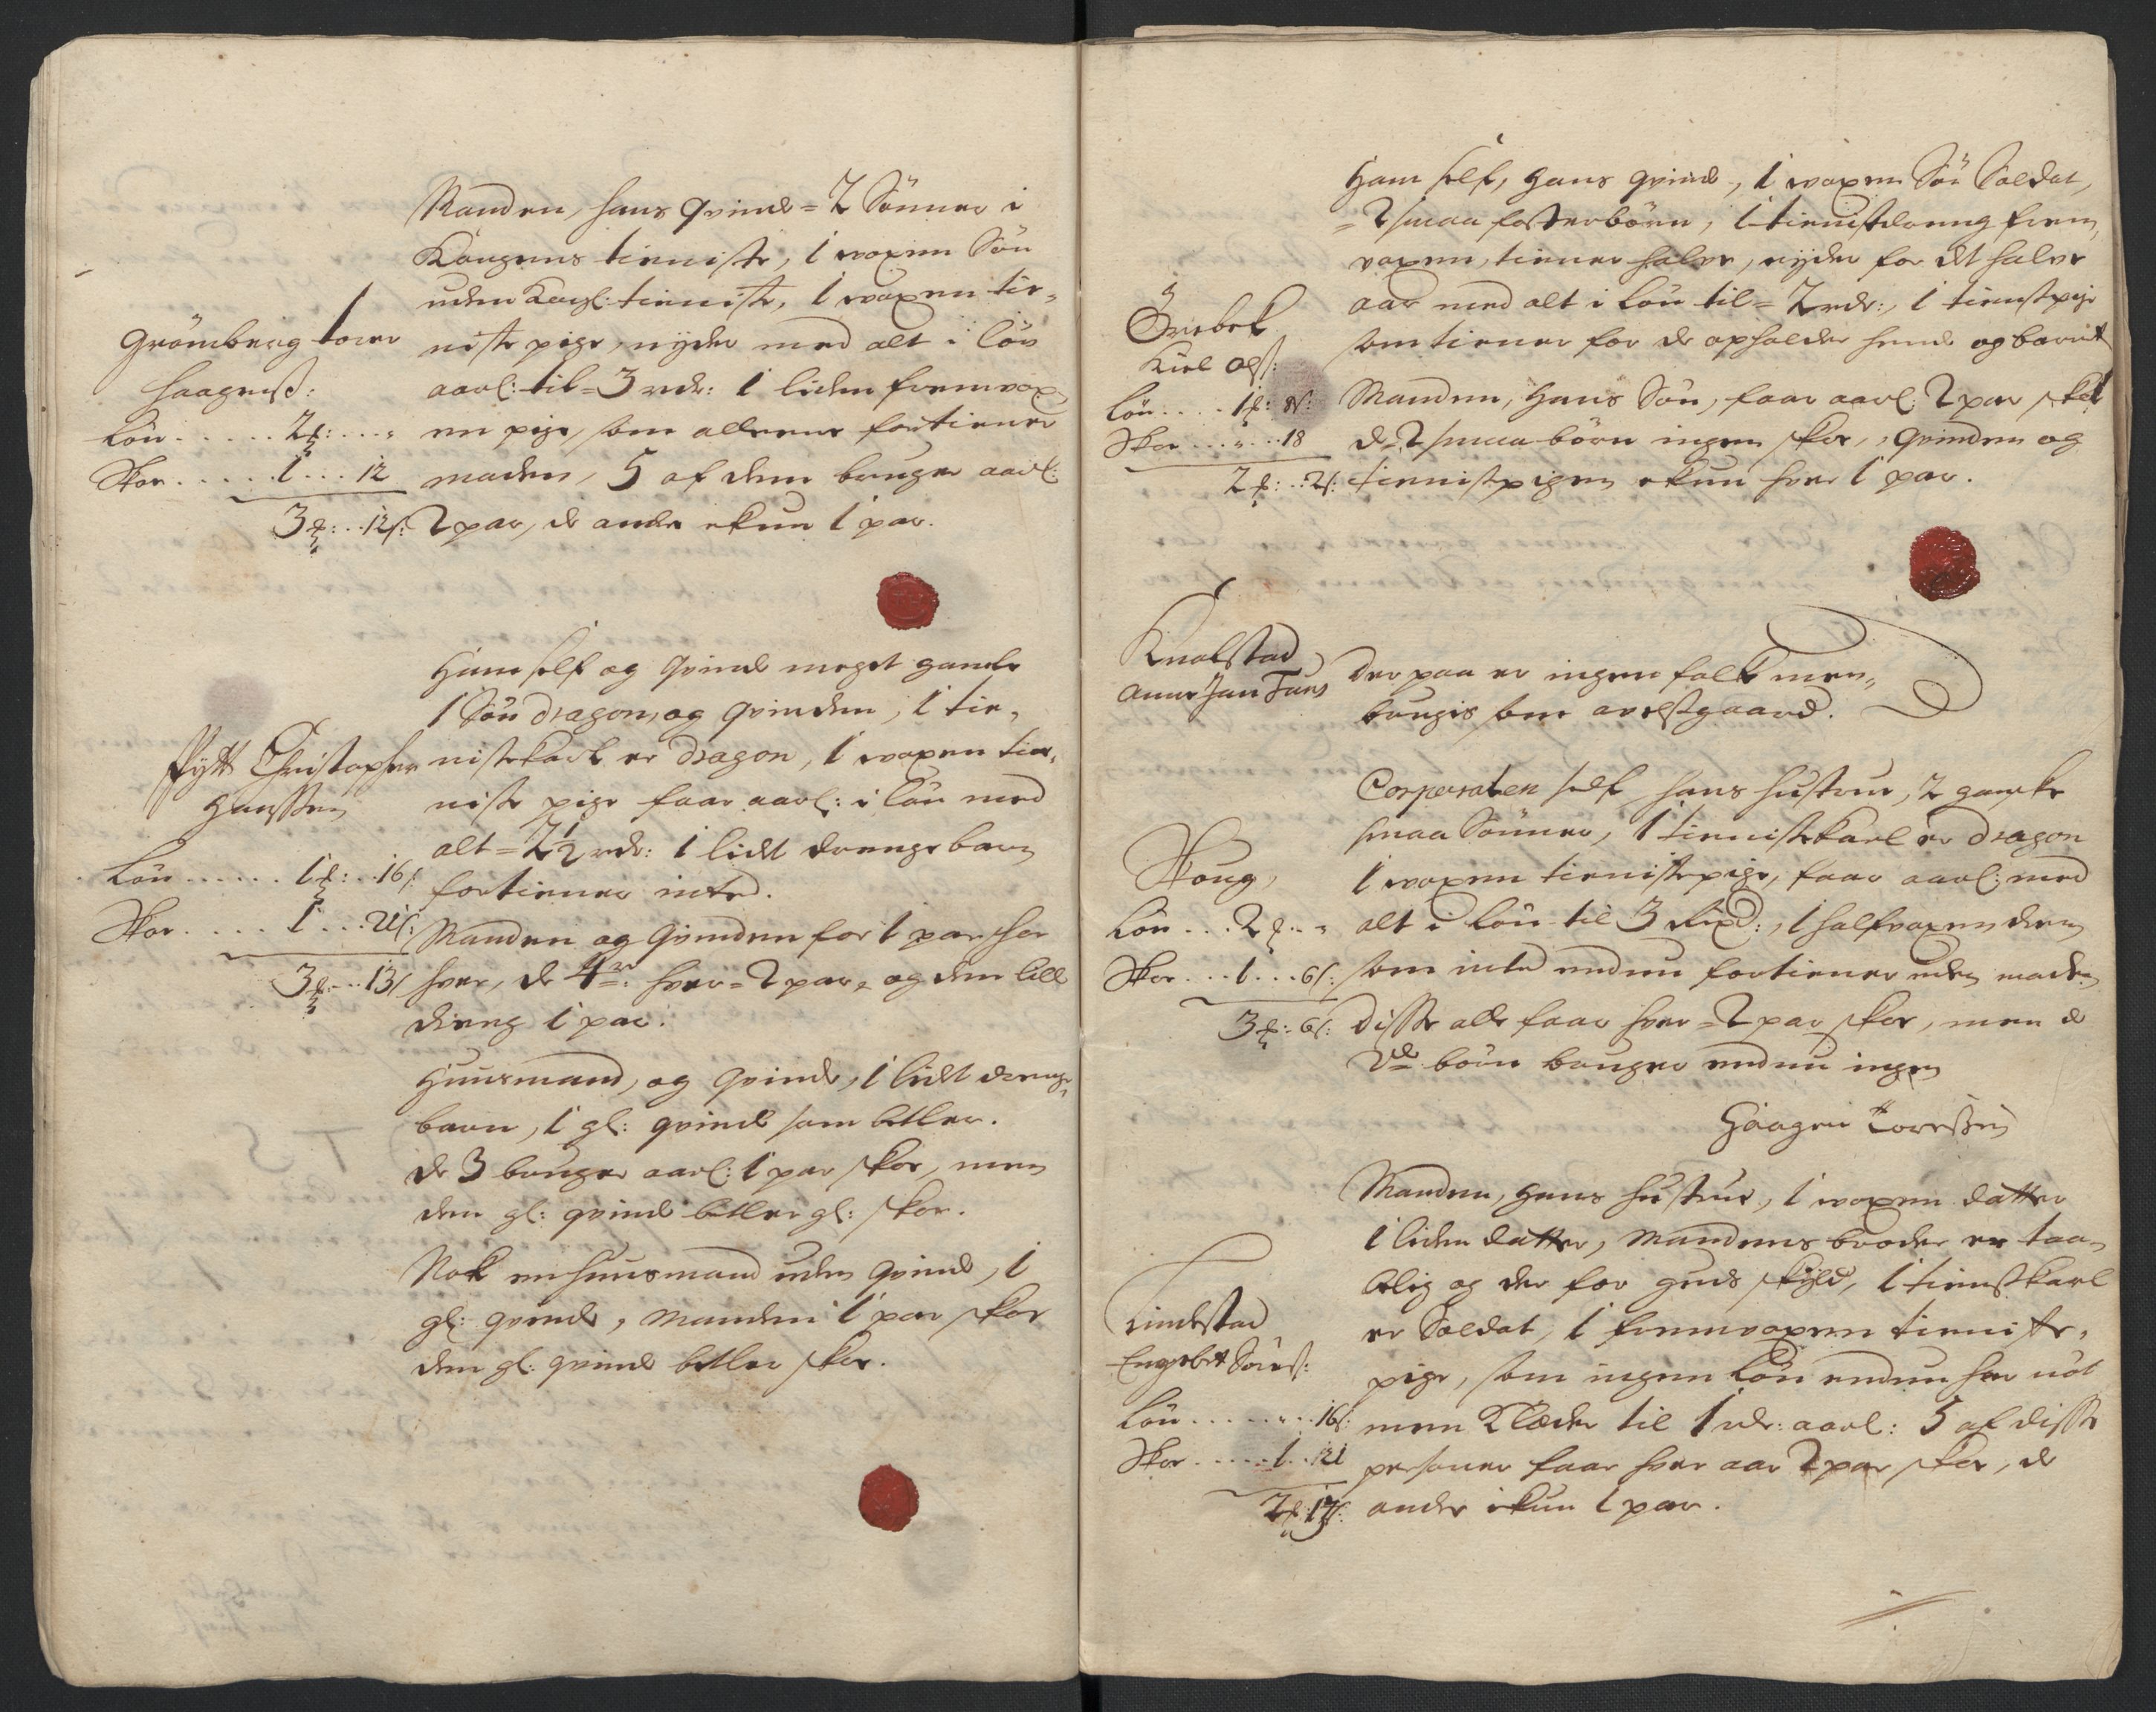 Manden, hans qvinde = 2 Sönner i
Kongens tieniste, 1 voxen Sön
uden Kongl: tieniste, 1 voxen tie-
niste pige, nyder med alt i lön
aarl: til = 3 rdr: 1 liden fremvox
en pige, som alleene fortiener
maden, 5 af dem bruger aarl:
2 par, de andre ekun 1 par.
Grömberig Torer
Haagenss:
Lön . . . . . 2
Skor . . . . . 1 . . . 12
3 : . . 12 s:
Ham self og qvinde meget gamle
1 Sön dragon, og qvinden, 1 tie-
nistekarl er dragon, 1 voxen tie-
niste pige faar aarl: i lön med
alt = 2½ rdr: 1 lidt drenge barn
fortiener inted.
Manden og qvinden for 1 par skor
hver, de 4re: hver = 2 par, og den lille
dreng 1 par.
Huusmand, og qvinde, 1 lidt drenge
barn, 1 gl: qvinde som betler.
de 3 bruger aarl: 1 par skor, men
den gl: qvinde betler gl: skor.
Nok en huusmand uden qvinde, 1
gl: qvinde, manden 1 par skor
den gl: qvinde betler skor.
Christopher
Hanssen
Lön . . . . . . 1 : . . 16 s:
Skor . . . . . 1 . . . 21 s:
3 : . . 13 s
Ham self, hans qvinde, 1 voxen Sön Soldat,
= 2 smaa fosterbörn, 1 tienistdreng frem
voxen, tiener halve, nyder for det halve
aar med alt i lön til = 2 rdr:, 1 tienstpige
som tiener for de opholder hende og barnet
Manden, hans Sön, faar aarl: 2 par skoe
de 2 smaa börn ingen skor, qvinden og
tienistpigen ekun hver 1 par.
Lön . . . . 1 : 8 s:
Skor . . . „ . . . 18
2 : . . 2 s:
Knalstad
der paa er ingen folk men
brugis som avelsgaard.
Corporalen self hans hustrue, 2 ganske
smaa Sönner, 1 tienistekarl er dragon
1 voxen tienistepige, faar aarl: med
alt i lön til 3 Rixd:, 1 halfvoxen dreng
som inted endnu fortiener uden maden
disse alle faar hver = 2 par skor, men de
2de börn bruger endnu ingen
Haagen Toressen
Skoug,
Lön . . . 2 . . „
Skor . . . 1 . . . 6 s:
3 : . 6 s:
Manden, hans hustrue, 1 voxen datter
1 liden datter, mandens broder er taa-
belig og der for guds skyld, 1 tienstkarl
er Soldat, 1 fremvoxen tieniste-
pige, som ingen lön endnu har nöt
men Klæder til 1 rdr: aarl: 5 af disse
personer faar hver aar 2 par skor, de
andre ekun 1 par.
Lindstad
Engebret
Lön . . . . . „ . . 16 s:
Skor . . . . . 1 . . 121
2 : 17 s: